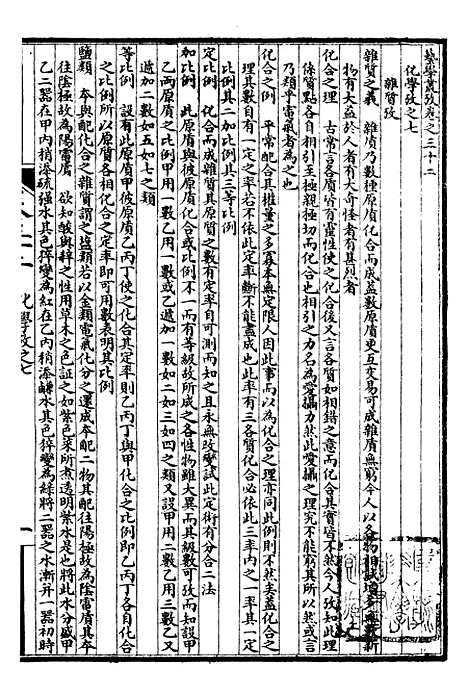 藝學叢攷卷之三十二
化學攷之七
雜質攷
雜質之義 雜質乃數種原質化合而成蓋數原質更互交易可成雜質無窮今人以各物相試增多無數新
物有大益於人者有大奇怪者有甚烈者
化合之理 古常言各質皆有靈性使之化合後又言各質如相錯之意而化合其實皆不然今人攷知此理
係質點各自相引至極親極切而化合也相引之力名為愛攝力然此愛攝之理究不能窮其所以然或言
乃類乎電氣者為之也
化合之例 平常配合其權量之多寡本無定限人因此事而以為化合之理亦同此例則不然蓋化合之
理其數自有一定之率若不依此定率斷不能盡成也此率有三各質化合必依此三率內之一率其一定
比例其二加比例其三等比例
定比例 化合而成雜質其原質之數有定率自可測而知之且永無改變試此定術有分合二法
加比例 此原質與彼原質化合或比例不一而有等級故所成之各性雖大異而其級數可攷而知設
乙兩原質之比例甲用一數乙用一數或乙遞加一數如二如三如四之類又設甲用二數乙用三數乙又
遞加二數如五如七之類
等比例 設有此原質甲彼原質乙丙丁使之化合其定率則乙丙丁與甲化合之比例即乙丙丁各自化合
之比例所以原質各相化合之定率即可用數表明其比例
鹽類 本與配化合之雜質謂之鹽類若以金類電氣化分之還成本配二物其配往陽極故為陰電質其本
往陰極故為陽電質 欲知酸與鹻之性用草木之色証之如紫色菜所煮透明紫水是也將此水分盛甲
乙二器在甲內稍添硫强水其色猝變為紅在乙內稍添鹻水其色猝變為綠將二器之水漸并一器初時
化學攷之七